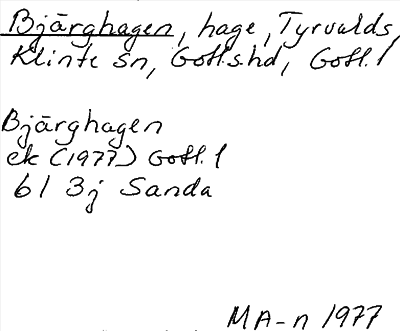 Bjärghagen, hage, Tyrvalds,
Klinte sn, Gotl.s.hd, Gotl. l
Bjärghagen
ek (1977) Gotl. l
61 3j Sanda
MA-n 1977